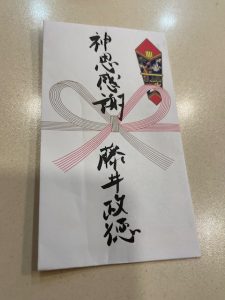 神恩感謝
藤井政徳